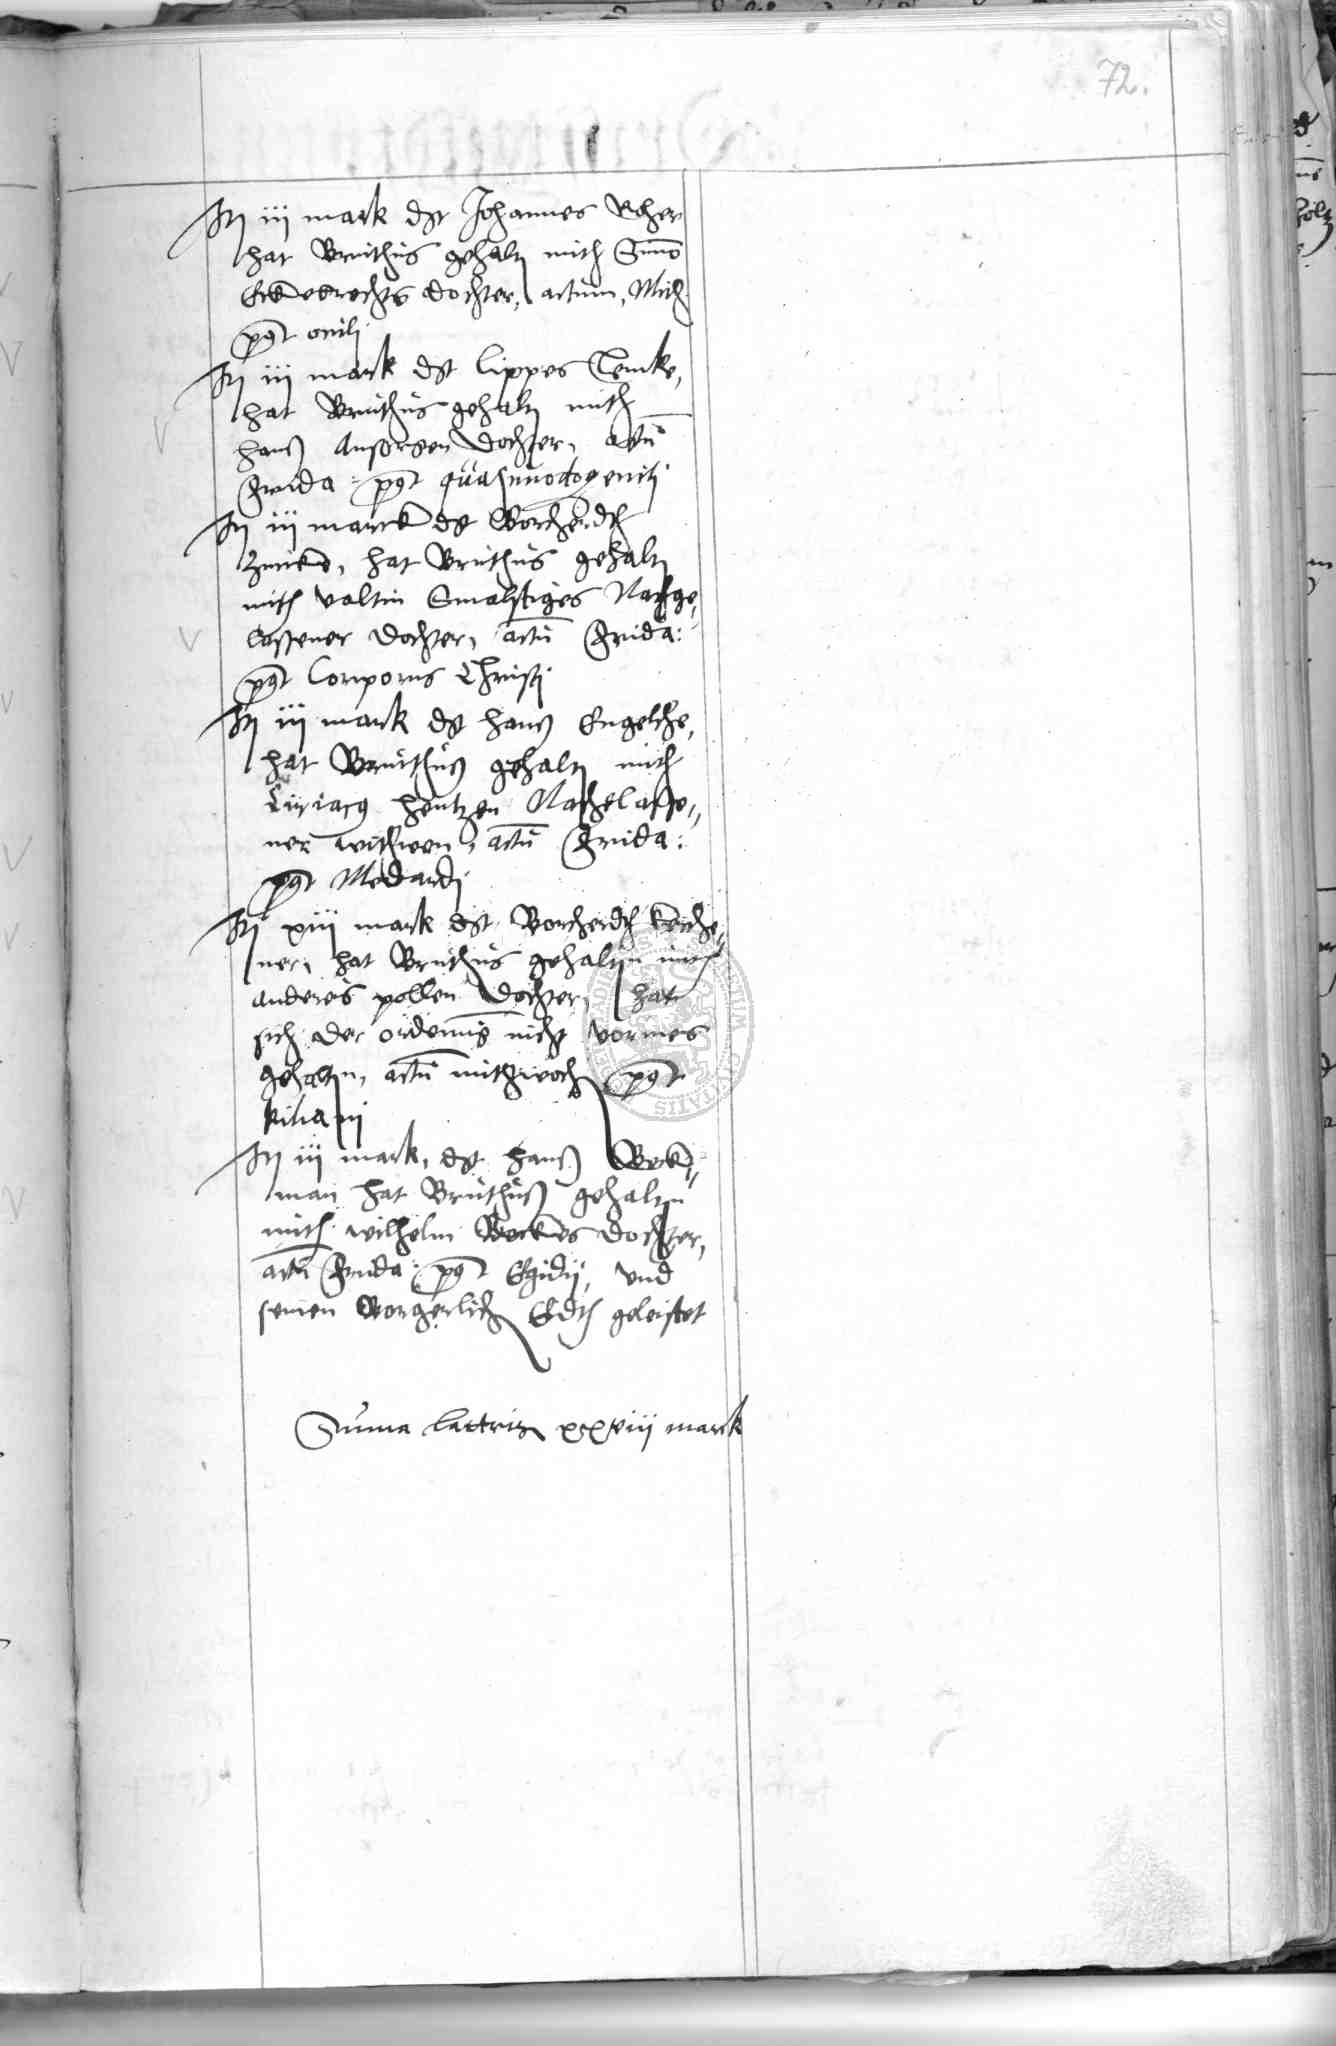 72.
It iij mark dt Johannes Recher
hat Bruthus gehalt mith Simo
Eckebrechts dochter, actum, Mith
post oculi
It iij mark dt Lippes Temke,
hat Bruthus gehalt mith
hanß Ansorgen dochter, actu
Frida: post quasimodogeniti
It iij marck dt Borcherdt
Zincke, hat Bruthus gehalt
mith valtin Smalstiges Nachge,,
lassener dochter, actu Frida:
post Corporis Christi
It iij mark dt hanß Engelche,
hat Bruthuß gehalt mith
Ciriacg hentzen Nachelasse,,
ner withwen, actu Frida:
post Medardi
It xiij mark dt Borcherdt kirche,,
ner, hat Bruthus gehaltn mith
anderes pollen dochter, hat
sich der ordenung nicht vormes
gehaltn, actu mithwoch post
kiliani
It iij mark, dt hanß Beck,,
man hat Bruthuß gehaltn
mith wilhelm Beckes dochter,
actu Frida: post Egidij, und
seinen Borgerlich Eidth geleistet
Suma lateris xxviij marck